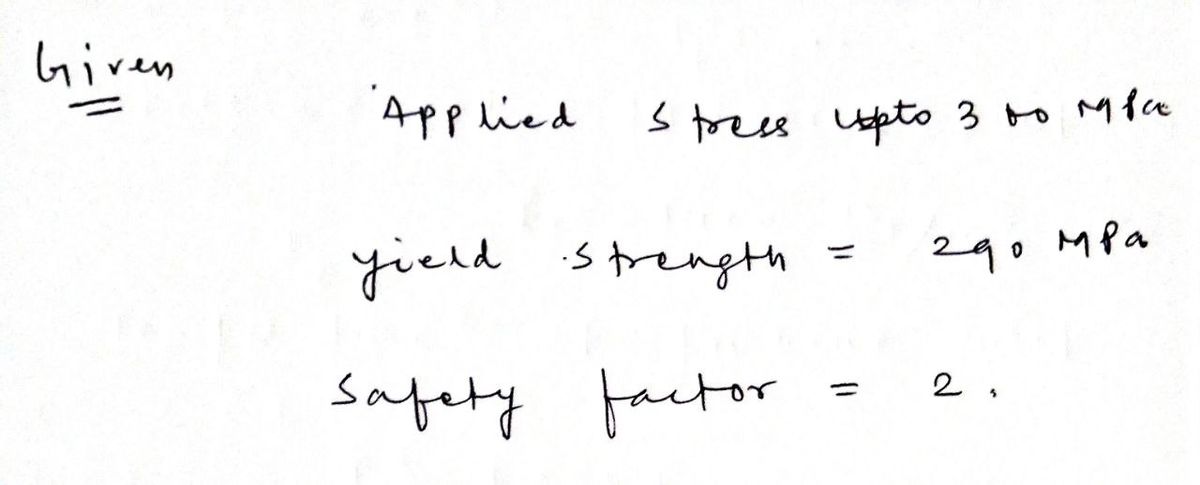 Given
Applied stress upto 300 MPa
yield strength = 290 MPa
safety factor = 2.